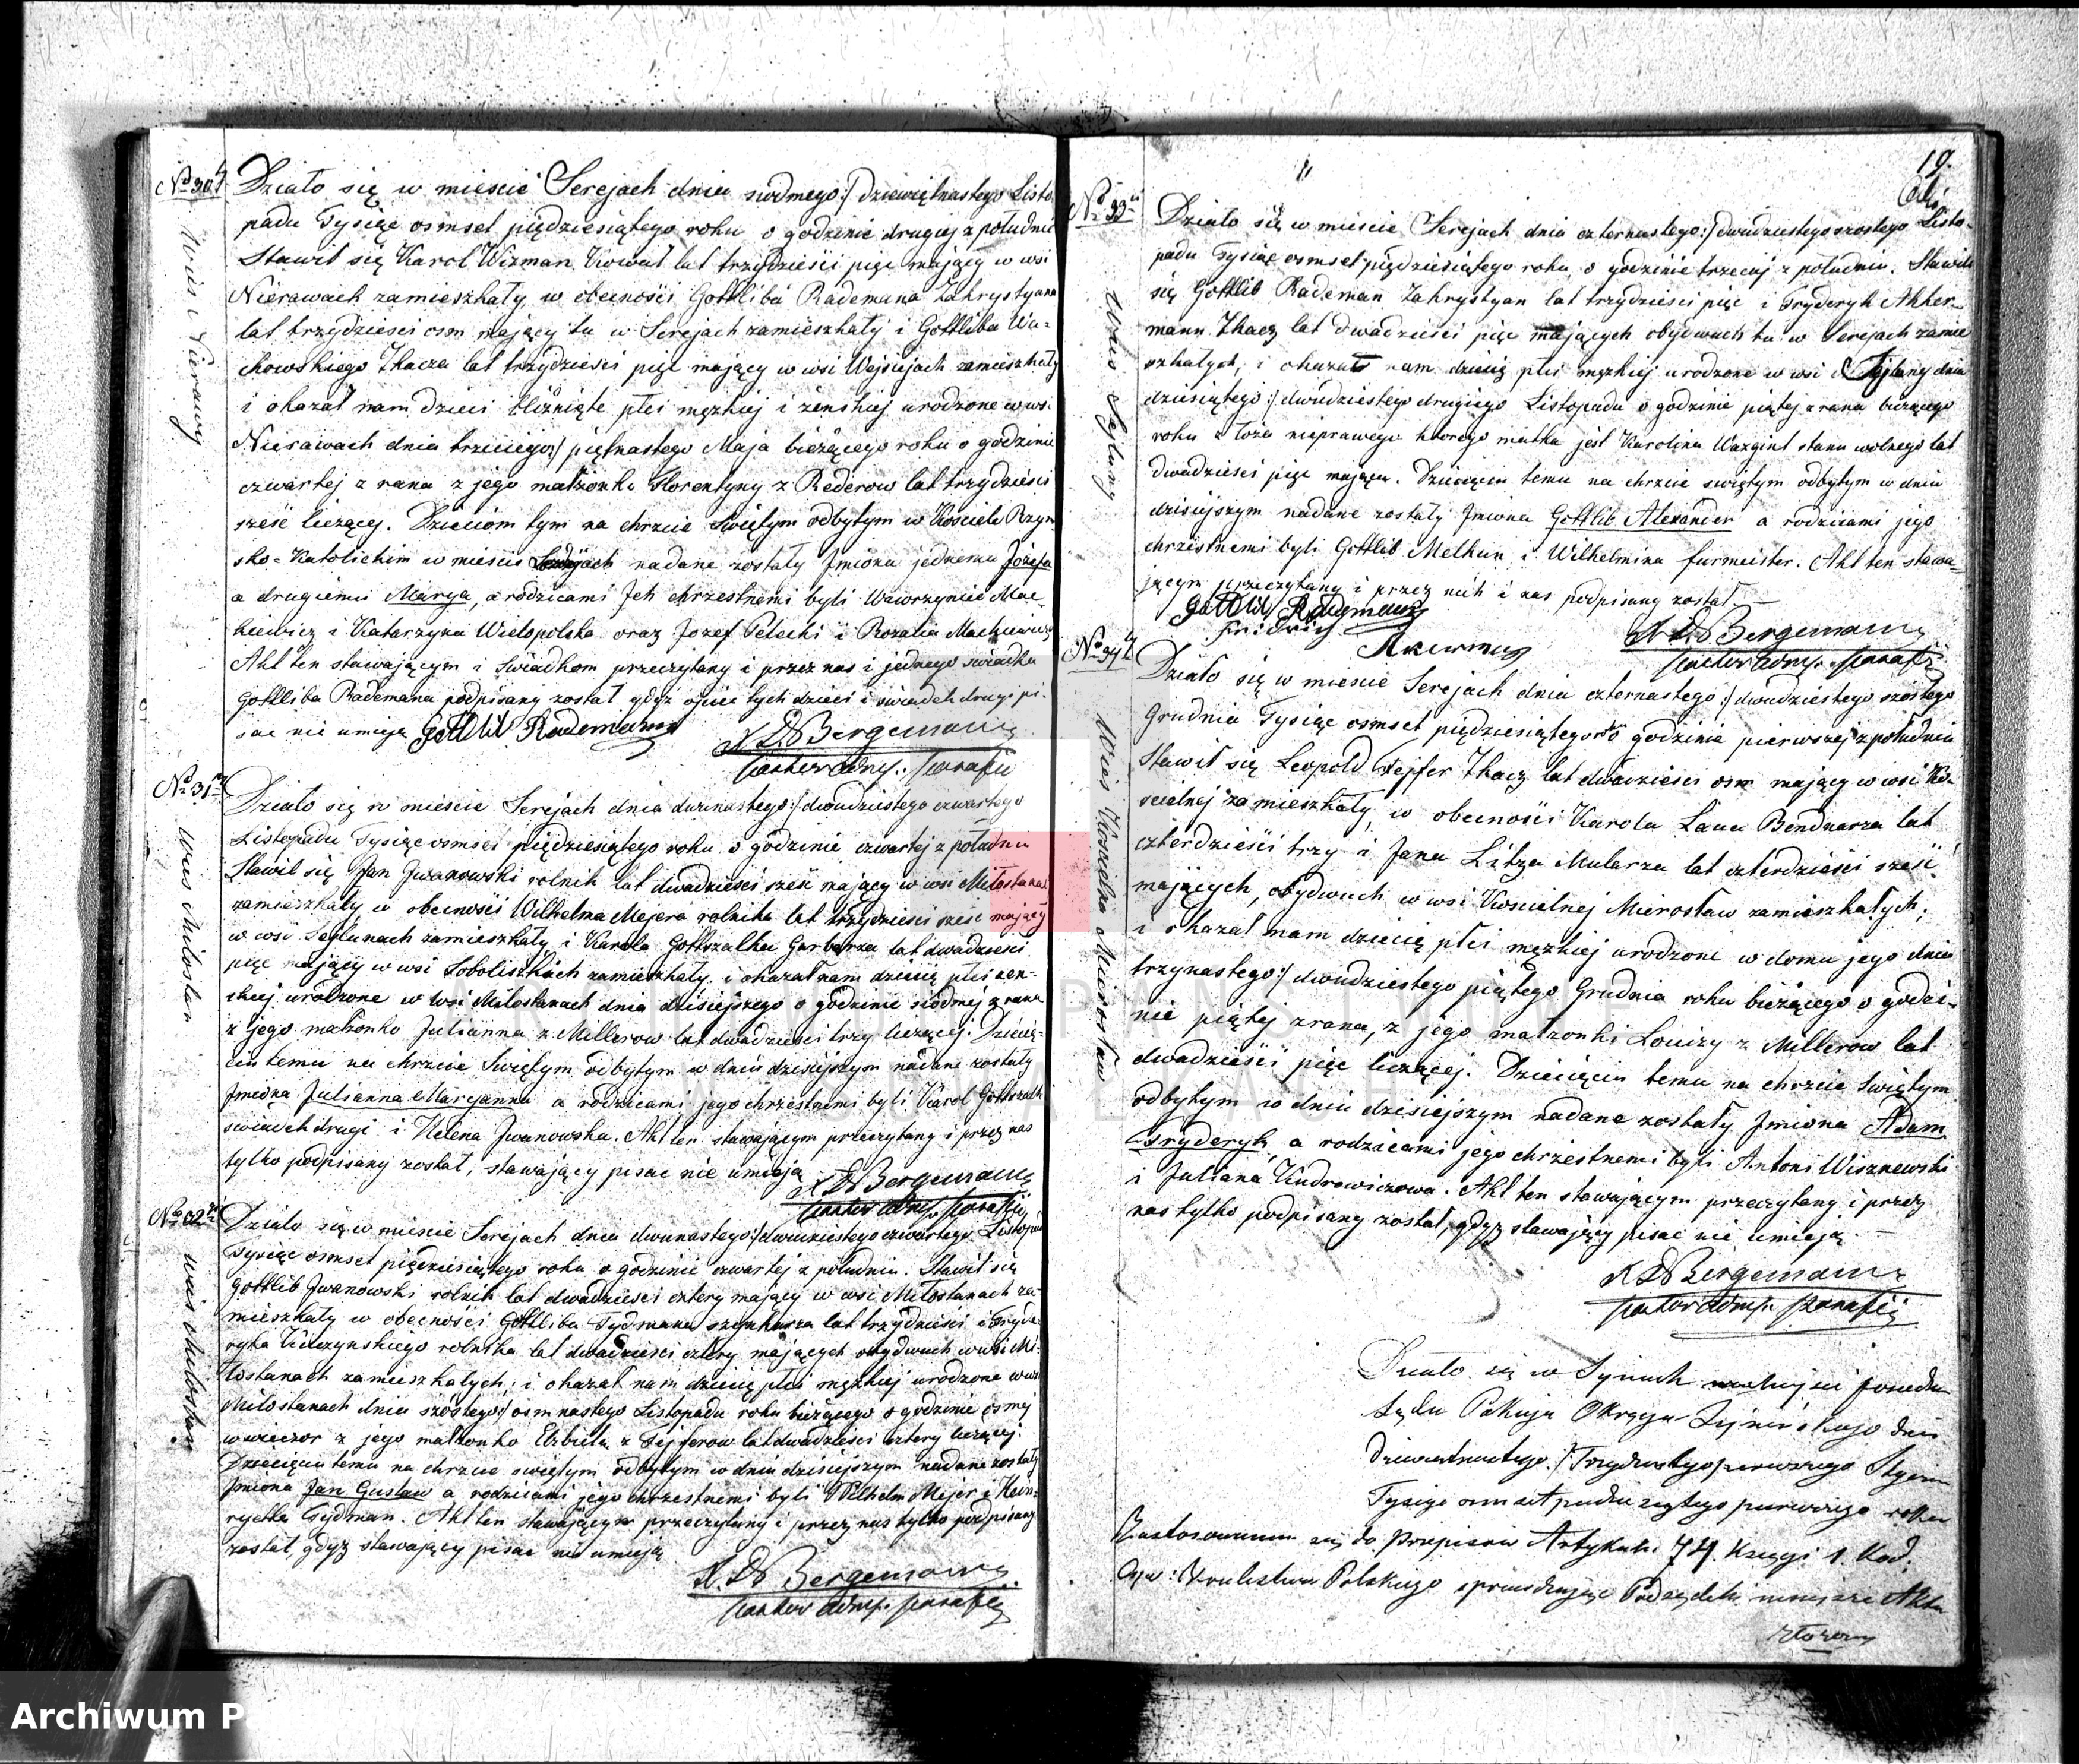 No 30ty
Wieś Nierawy
Działo się w mieście Serejach dnia siódmego:/ dziewiętnastego Listo
padu Tysiąc osmset pięćdziesiątego roku o godzinie drugiej z południa
Stawił się Karol Wizman Kowal lat trzydzieści pięc mający w wsi
Nierawach zamieszkały, w obecności Gottliba Rademana Zakrystyana
lat trzydzieści osm mający tu w Serejach zamieszkały i Gottliba Wa-
chowskiego Tkacza lat trzydzieści pięc mający w wsi Wejsiejach zamieszkały
i okazał nam dzieci bliźnięte płci męzkiej i żenskiej urodzone w wsi
Nierawach dnia trzeciego:/ piętnastego Maja bieżącego roku o godzinie
czwartej z rana z jego małżonki Florentyny z Rederow lat trzydzieści
sześć liczącej. Dzieciom tym na chrzcie Świętym odbytym w Kościele Rzym
sko-Katolickim w mieście nadane zostały Jmiona jednemu Jozefa
a drugiemu Marya, a rodzicami Jch chrzestnemi byli Wawrzyniec Mac-
kiewicz i Katarzyna Wielopolska oraz Jozef Petecki i Rozalia Mackiewicz
Akt ten stawającym i Świadkom przeczytany i przez nas i jednego świadka
Gottliba Rademana podpisany został gdyż ojciec tych dzieci i świadek drugi pi-
sac nie umieją Gottlib Rademann K D Bergemann
Pastor Adm. parafii
No 31
Wieś Miłostan
Działo się w mieście Serejach dnia dwunastego:/ dwudziestego czwartego
Listopadu Tysiąc osmset pięćdziesiątego roku o godzinie czwartej z południa
Stawił się Jan Jwanowski rolnik lat dwadzieści sześć mający w wsi Miłostanach
zamieszkały, w obecności Wilhelma Mejera rolnika lat trzydzieści sześc mający
w wsi Seglunach zamieszkały i Karola Gottszalka Garbarza lat dwadzieści
pięc mający w wsi Soboliszkach zamieszkały. i okazał nam dziecię płci żen-
skiej urodzone w wsi Miłostanach dnia dzisiejszego o godzinie siódmej z rana
z jego małżonko Julianna z Millerow lat dwadzieści trzy liczącej. Dziecię-
ciu temu na chrzcie Świętym odbytym w dniu dzisiejszym nadane zostały
Jmiona Julianna Maryanna a rodzicami jego chrzestnemi byli Karol Gottszalk
świadek drugi i Helena Jwanowska. Akt ten stawającym przeczytany i przez nas
tylko podpisany został, stawający pisac nie umieją
K D Bergemann
Pastor Adm. parafii
No 32
Wieś Miłostan.
Działo się w mieście Serejach dnia dwunastego:/ dwudziestego czwartego Listopada
Tysiąc osmset pięćdziesiątego roku o godzinie czwartej z południa. Stawił się
Gottlib Jwanowski rolnik lat dwadzieści cztery mający w wsi Miłostanach za-
mieszkały w obecności Gottliba Tydmana szynkarza lat trzydzieści i Fryde
ryka Kiełczynskiego rolnika lat dwadzieści cztery mających obydwuch w wsi Mi-
łostanach zamieszkałych; i okazał nam dziecię płci męzkiej urodzone w wsi
Miłostanach dnia szóstego:/ osmnastego Listopadu roku bieżącego o godzinie ósmej
w wieczor z jego małżonko Elzbieta z Fejferow lat dwadzieści cztery liczącej.
Dziecięciu temu na chrzcie świętym odbytym w dniu dzisiejszym nadane zostały
Jmiona Jan Gustaw a rodzicami jego chrzestnemi byli Wilhelm Mejer i Hein-
ryetta Tydman. Akt ten stawającym przeczytany i przez nas tylko podpisany
został, gdyż stawający pisac nie umieją
K. D Bergemann.
Pastor Adm. parafii
19.
No 33
Wieś Sejtuny
Działo się w mieście Serejach dnia czternastego:/ dwudziestego szostego Listo-
padu Tysiąc osmset pięćdziesiątego roku o godzinie trzeciej z południa. Stawili
się Gottlib Rademan Zakrystyan lat trzydzieści pięc i Fryderyk Akker-
mann Tkacz lat dwadzieści pięc mających obydwuch tu w Serejach zamie
szkałych, i okazał nam dziecię płci męzkiej urodzone w wsi dnia
dziesiątego:/ dwudziestego drugiego Listopadu o godzinie piątej z rana bieżącego
roku z łoża nieprawego którego matka jest Karolina Wazgint stanu wolnego lat
dwadzieści pięc mająca. Dziecięciu temu na chrzcie świętym odbytym w dniu
dzisiejszym nadane zostały Jmiona Gottlib Alexander a rodzicami jego
chrzestnemi byli Gottlib Melkun i Wilhelmina furmeister. Akt ten stawa-
jącym przeczytany i przez nich i nas podpisany został.
Gottlib Rademann
Fridrich Akermann
K D Bergemann
Pastor Adm. parafii
No 34ty
Wieś Koszielka Mierosław
Działo się w mieście Serejach dnia czternastego:/ dwudziestego szóstego
Grudnia Tysiąc osmset pięćdziesiątego o godzinie pierwszej z południa
Stawił się Leopold Fejfer Tkacz lat dwadzieści osm mający w wsi Ko-
scielnej zamieszkały, w obecności Karola Laua Bendnarza lat
czterdzieści trzy i Jana Litza Mularza lat czterdzieści sześć
mających, obydwuch w wsi Koscielnej Mierosław zamieszkałych;
i okazał nam dziecię płci męzkiej urodzone w domu jego dnia
trzynastego:/ dwudziestego piątego Grudnia roku bieżącego o godzi-
nie piątej z rana, z jego małżonki Louizy z Millerow lat
dwadzieści pięc liczącej. Dziecięciu temu na chrzcie Świętym
odbytym w dniu dzisiejszym nadane zostały Jmiona Adam
Fryderyk, a rodzicami jego chrzestnemi byli Antoni Wiszniewski
i Juliana Kudrewiczowa. Akt ten stawającym przeczytany i przez
nas tylko podpisany został, gdyż stawający pisac nie umieją.
K D Bergemann
Pastor Adm. parafii
Działo się w Synach
Sądu Pokoju Okręgu Sejneńskiego dnia
Dziewiętnastego:/ Trzydziestego pierwszego Stycz
Tysiąc osmset pierwszego roku
Zastosowanie się do Przepisow Artykułu 74. Księgi 1. Kod.
Cyw: Królestwa Polskiego Podsędek niniejsze Akta
Archiwum Pa